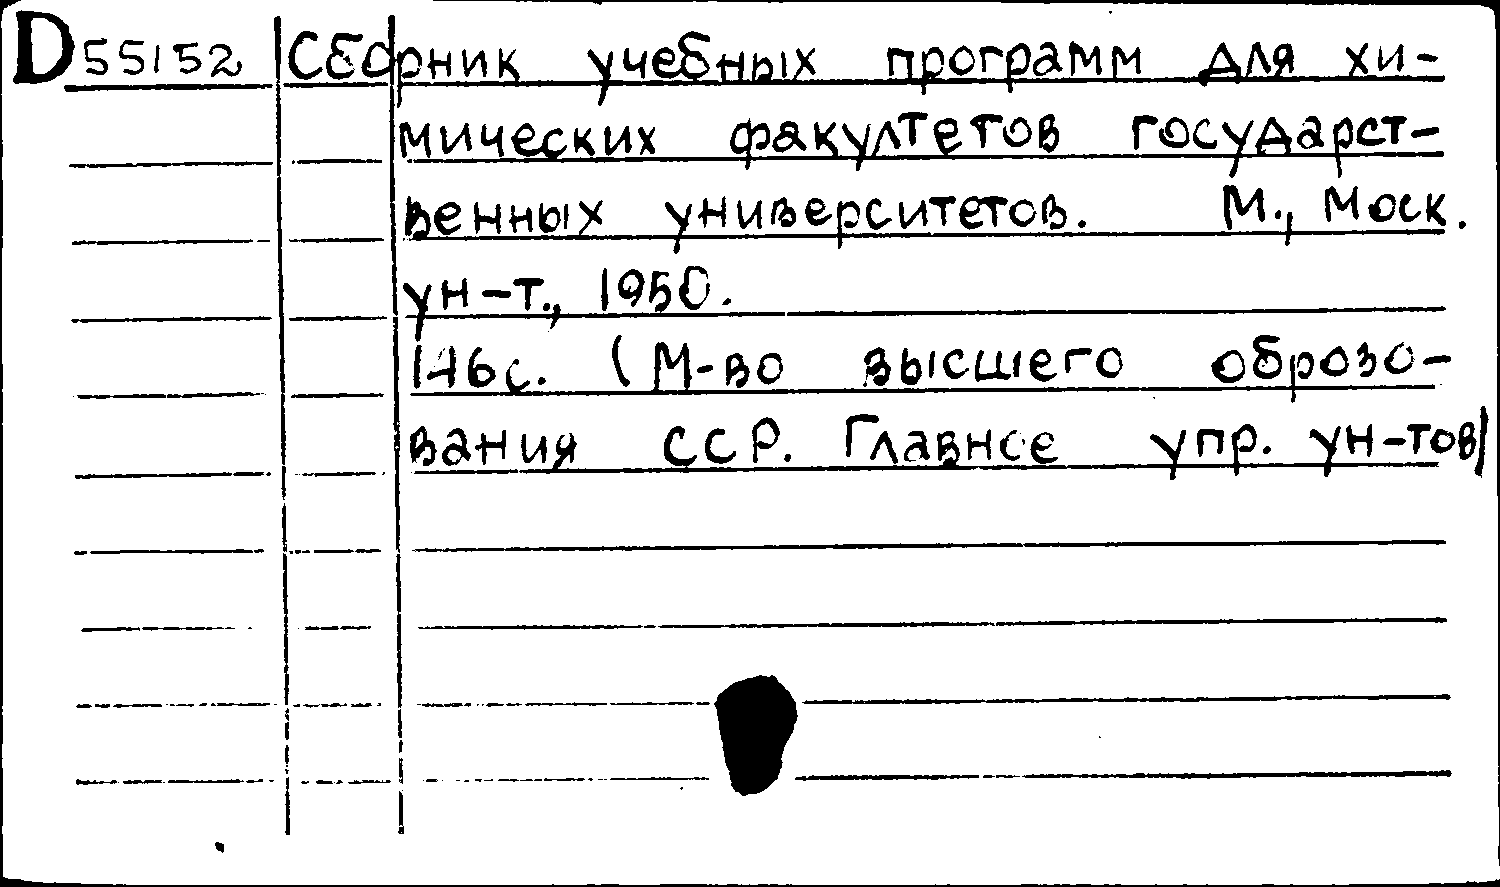 D55152 Сборник учебных программ для хи-
мических факултетов государст-
венных университетов. М., Моск.
ун-т., 1950.
146с. (М-во высшего оброзо-
вания ССР. Главное упр. ун-тов)